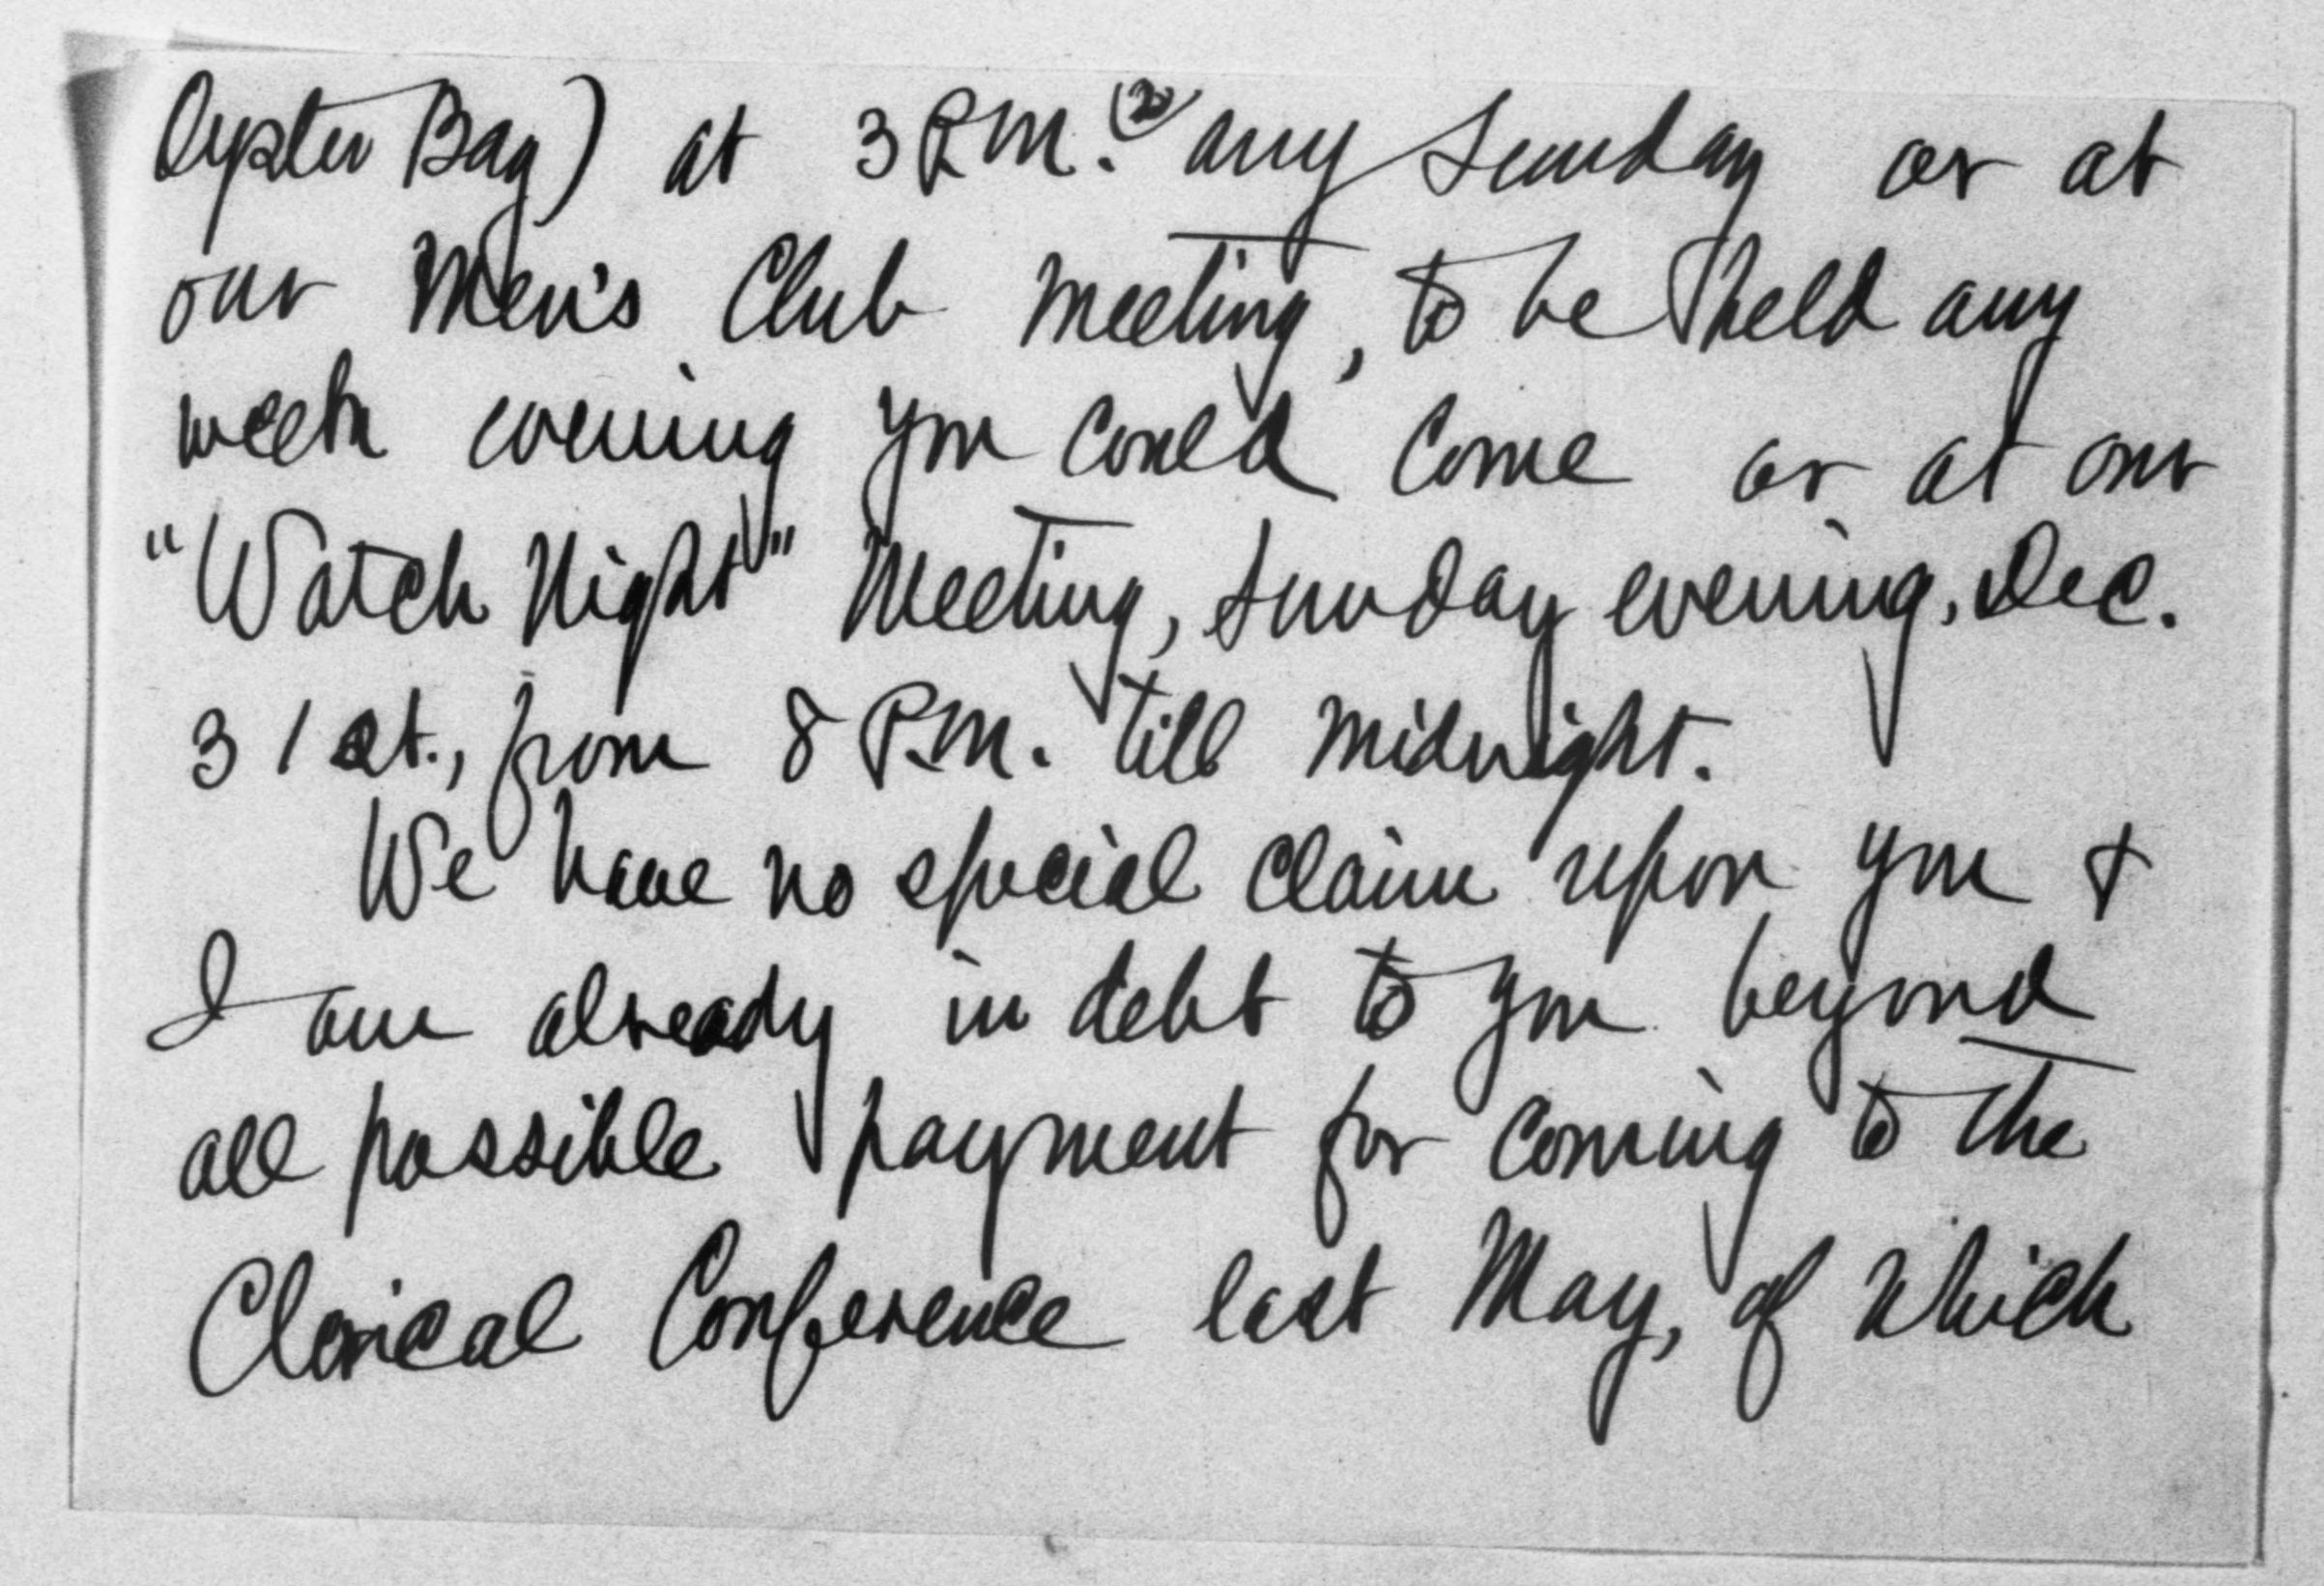 Oyster Bay) at 3 P.M. (2) any Sunday or at
our Men's Club meeting, to be held any
week evening you could come or at our
"Watch Night" Meeting, Sunday evening, Dec.
31st., from 8 P.M. till midnight.
We have no special claim upon you &
I am already in debt to you beyond
all possible payment for coming to the
Clerical Conference last May, of which